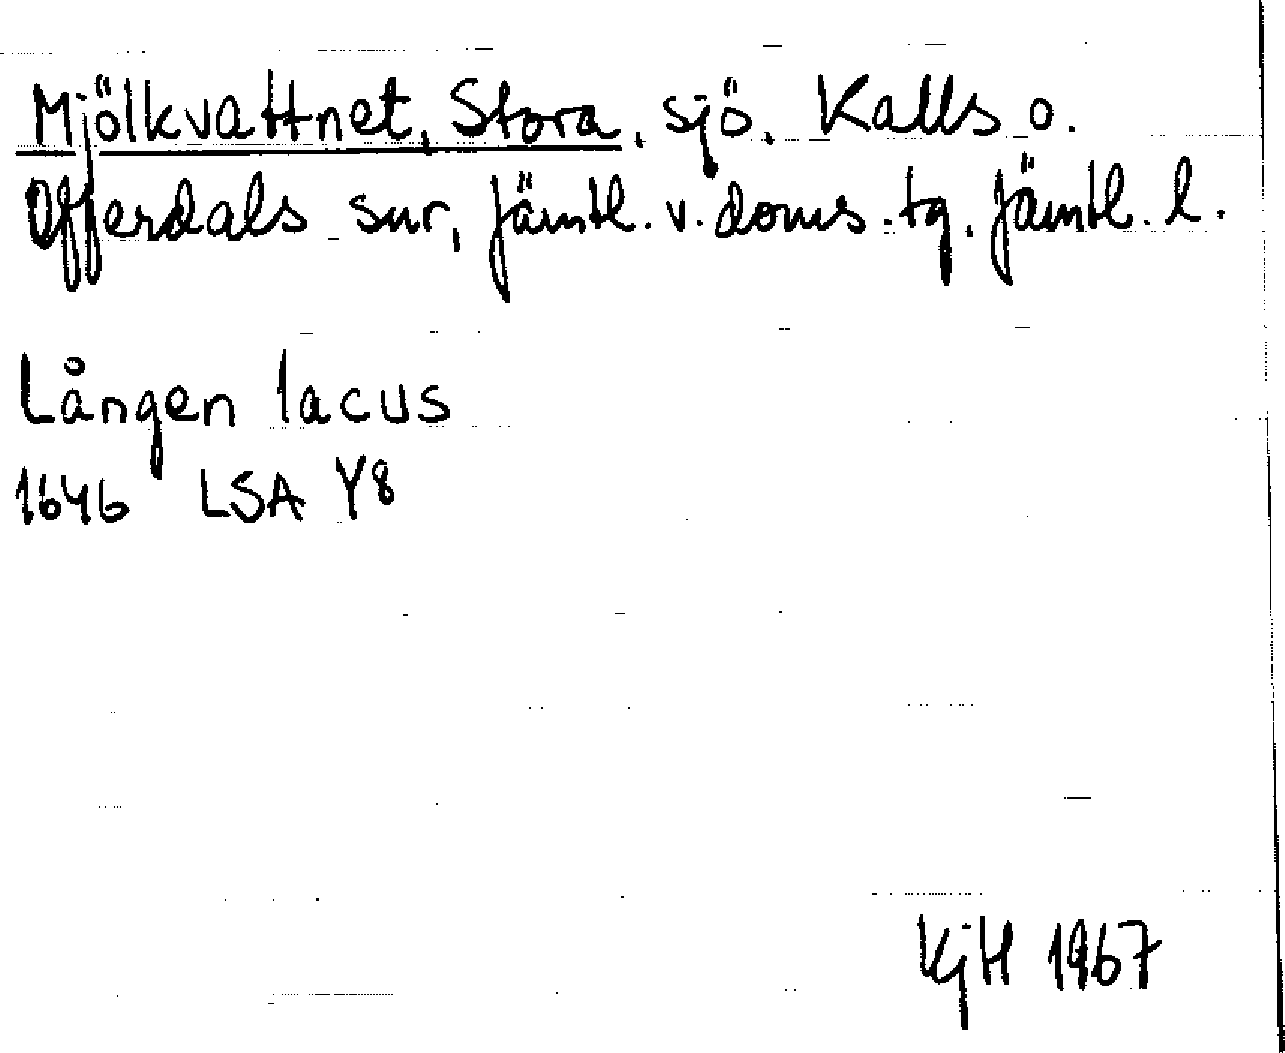 Mjölkvattnet, Stora, sjö, Kalls o.
Offerdals snr, Jämtl. v. doms. tg, Jämtl. l.
Lången lacus
1646 LSA Y8
KjH 1967